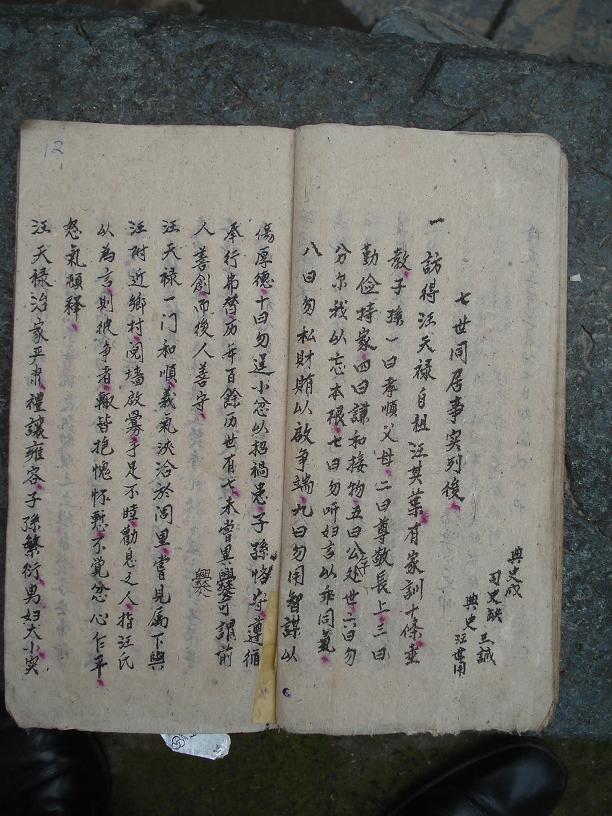 典史成
司吏 王誠
典史汪世用
七世同居事实列後
一訪得汪天禄自祖汪其葉有家訓十條垂
教子孫一曰孝順父母二曰尊敬長上三曰
勤俭持家四曰謙和接物五曰公平处世六曰勿
分尔我以忘本根七曰勿听妇言以乖同氣
八曰勿私財賄以啟争端九曰勿用智謀以
傷厚德十曰勿逞小忿以招禍患子孫恪守遵循
奉行弗替历年百餘历世有七未嘗異爨可謂前
爨
人善創而後人善守
汪天禄一门和順義氣浹洽於闾里嘗見属下與
汪附近鄉村鬩墙啟釁手足不睦勸息之人指汪氏
以為言則彼争者輙皆抱愧怀慙不覺忿心乍平
怒氣頓釋
汪天禄治家严肃禮讓雍容子孫繁衍男妇大小实
12